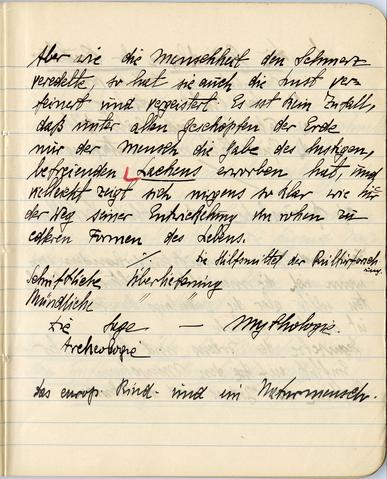 Aber wie die Menschheit den Schmerz
veredelte, so hat sie auch die Lust ver-
feinert und vergeistert. Es ist kein Zufall,
daß unter allen Geschöpfen der Erde
nur der Mensch die Gabe des lustigen,
befreienden Lachens erworben hat, und
vielleicht zeigt sich nirgens so klar wie hier
der Weg seiner Entwickelung von rohen zu
edleren Formen des Lebens.
Die Hilfsmittel der Kulturforsch
ung.
Schriftliche Überlieferung
Mündliche " "
Die Sage — Mythologie.
Archeologie
Das europ. Kind- und ein Naturmensch.